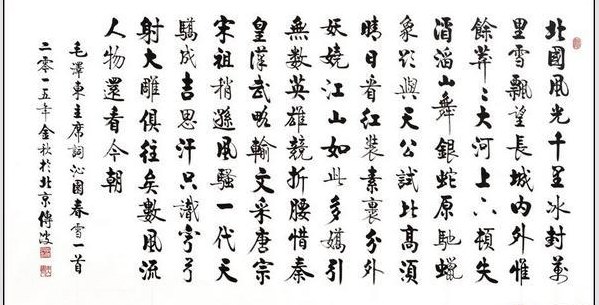 北國風光千里冰封萬
里雪飄望長城內外惟
餘莽々大河上下頓失
滔滔山舞銀蛇原馳蠟
象欲與天公試比高須
晴日看紅裝素裹分外
妖嬈江山如此多嬌引
無數英雄競折腰惜秦
皇漢武略輸文采唐宗
宋祖稍遜風騷一代天
驕成吉思汗只識彎弓
射大雕俱往矣數風流
人物還看今朝
毛澤東主席詞沁園春雪一首
二零一五年金秋於北京傅波